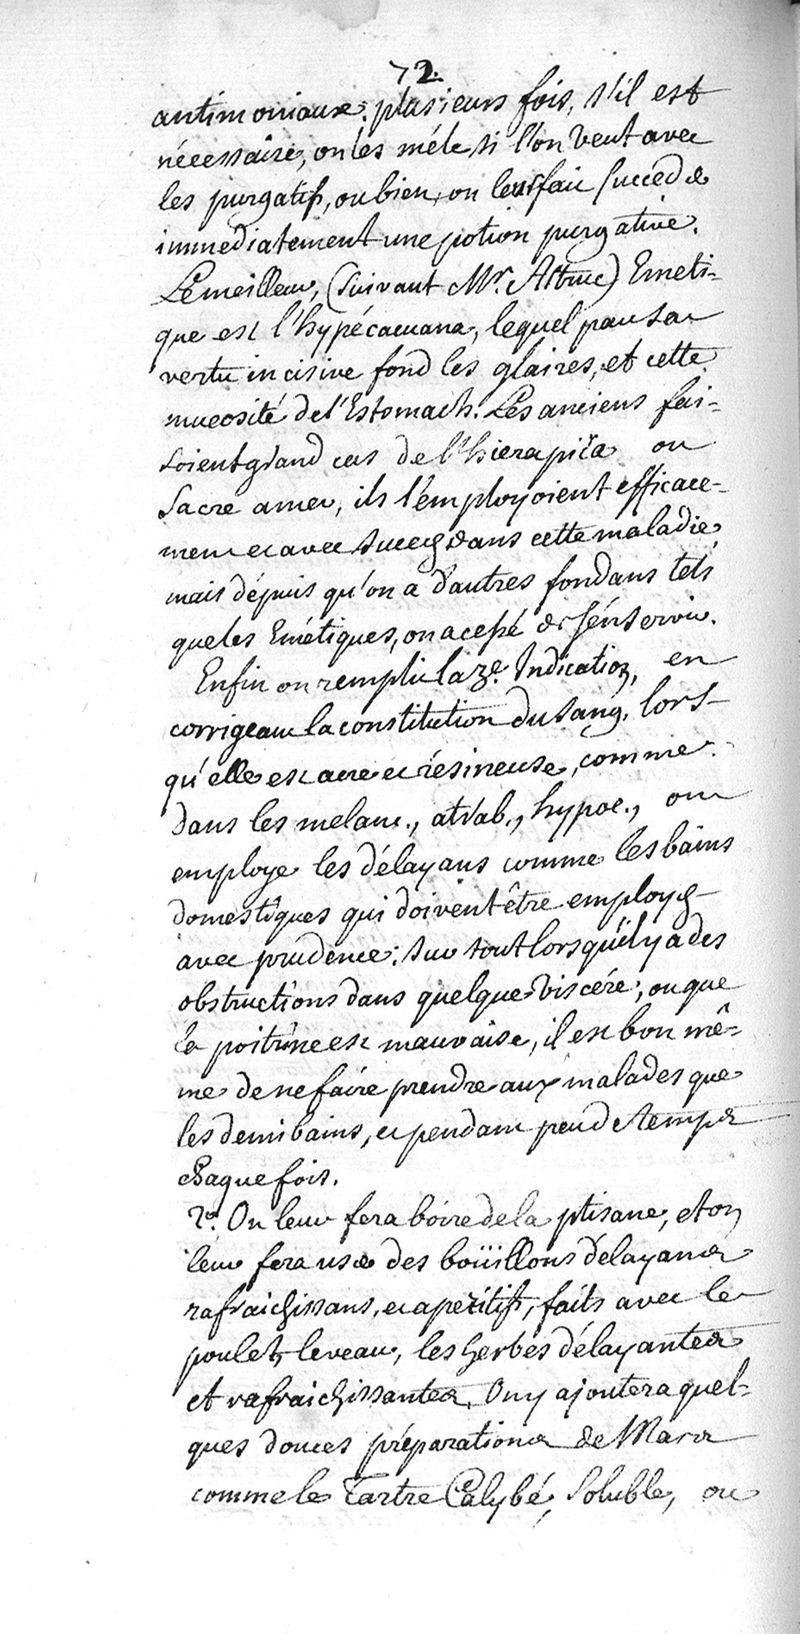 72.
antimoniaux; plusieurs fois, s'il est
nécessaire, on les mêle si l'on veut avec
les purgatifs, ou bien, on leur fait succeder
immediatement une potion purgative.
Le meilleur, (suivant Mr. Astruc) Emeti-
que est l'hypécacuana, lequel par sa
vertu incisive fond les glaires, et cette
mucosité de l'Estomach. Les anciens fai-
soient grand cas de l'hierapicra ou
Sacre amer, ils l'employoient efficace-
ment et avec succez dans cette maladie,
mais dépuis qu'on a d'autres fondans tels
que les Emétiques, on a cessé de s'én servir.
Enfin on remplit la 3e. Indication, en
corrigeant la constitution du sang, lors-
qu'elle est acre et résineuse, comme
dans les melanc., atrab., hypoc., on
employe les délayans comme les bains
domestiques qui doivent être employez
avec prudence: sur tout lorsqu'il y a des
obstructions dans quelque viscére, ou que
la poitrine est mauvaise, il est bon mê-
me de ne faire prendre aux malades que
les demi bains, et pendant peu de temps
chaque fois.
2o. On leur fera boire de la ptisane, et on
leur fera user des boüillons délayans
rafraichissans, et aperitifs, faits avec le
poulet, le veau, les herbes délayantes
et rafraichissantes. On y ajoutera quel-
ques douces préparations de Mars
comme le Tartre Calybé, soluble, ou